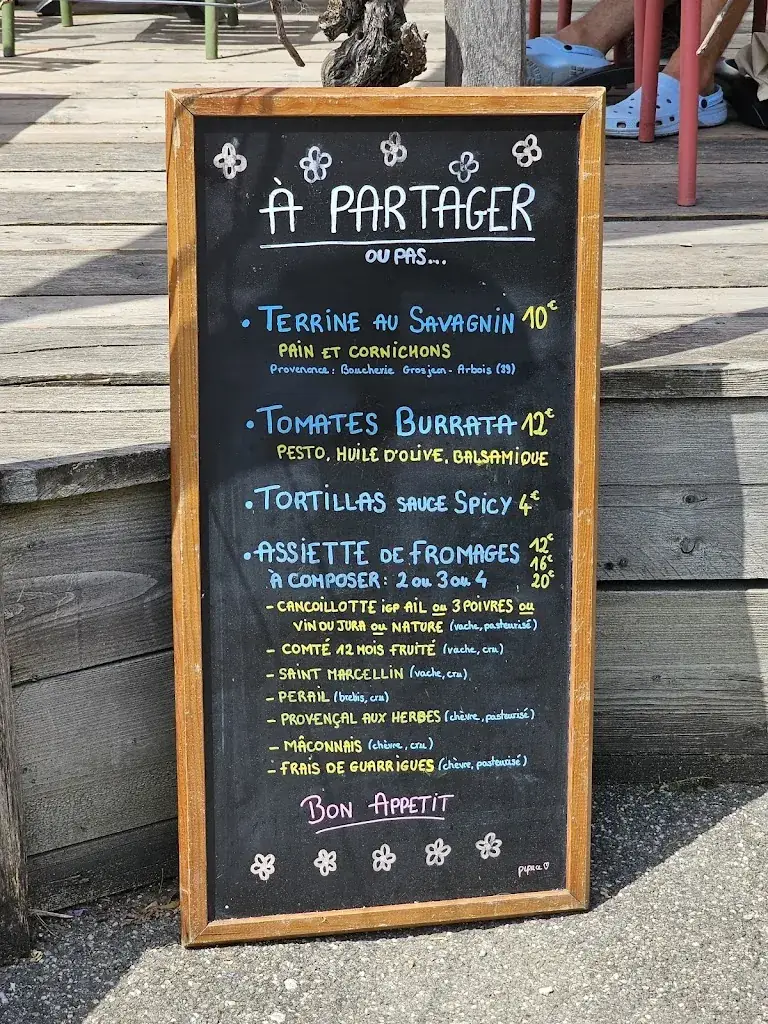 À PARTAGER
OU PAS...
• TERRINE AU SAVAGNIN 10€
PAIN ET CORNICHONS
Provenance : Boucherie Grosjean - Arbois (39)
• TOMATES BURRATA 12€
PESTO, HUILE D'OLIVE, BALSAMIQUE
• TORTILLAS SAUCE SPICY 4€
• ASSIETTE DE FROMAGES 12€
16€
À COMPOSER : 2 ou 3 ou 4 20€
- CANCOILLOTTE IGP AIL ou 3 POIVRES ou
VIN DU JURA ou NATURE (vache, pasteurisé)
- COMTÉ 12 MOIS FRUITÉ (vache, cru)
- SAINT MARCELLIN (vache, cru)
- PERAIL (brebis, cru)
- PROVENÇAL AUX HERBES (chèvre, pasteurisé)
- MÂCONNAIS (chèvre, cru)
- FRAIS DE GUARRIGUES (chèvre, pasteurisé)
BON APPETIT